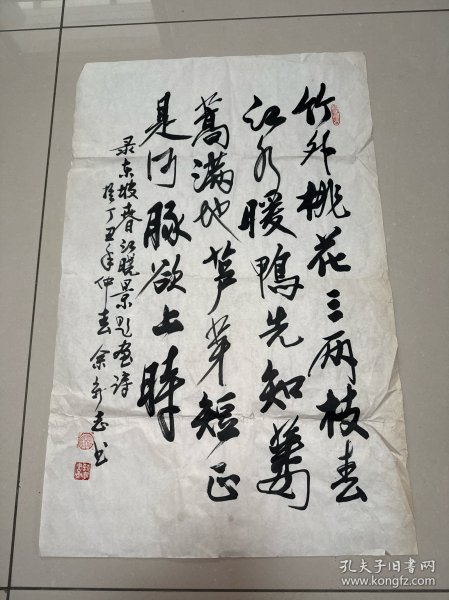 竹外桃花三两枝春
江水暖鸭先知蒌
蒿满地芦芽短正
是河豚欲上时
录东坡春江晓景题画诗
丁丑年仲春余
书
孔夫子旧书网
www.kongfz.com